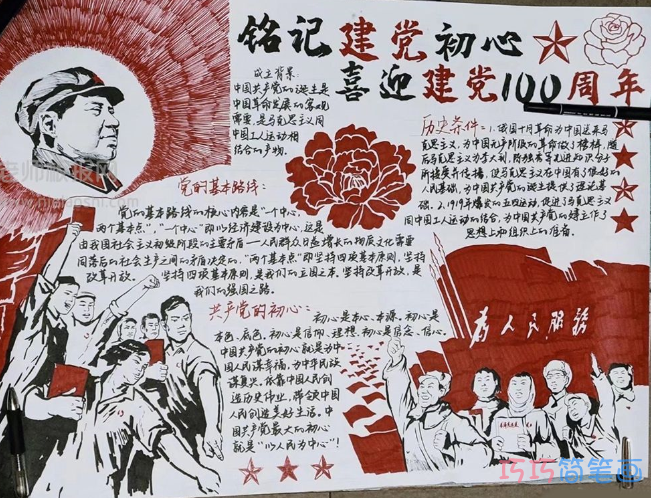 铭记建党初心
喜迎建党100周年
成立背景：
中国共产党的诞生是
中国革命发展的客观
需要，是马克思主义同
中国工人运动相
结合的产物。
历史条件：1.俄国十月革命为中国送来马
克思主义，为中国无产阶级的革命做了榜样，随
后马克思主义为李大钊、陈独秀等先进知识分子
所接受并传播，使马克思主义在中国有了很好的
人民基础，为中国共产党的诞生提供了理论基
础。2.1919年爆发的五四运动，促进了马克思主义
同中国工人运动的结合，为中国共产党的建立作了
思想上和组织上的准备。
党的基本路线：
党的基本路线的核心内容是"一个中心，
两个基本点"，"一个中心"即以经济建设为中心，这是
由我国社会主义初级阶段的主要矛盾——人民群众日益增长的物质文化需要
同落后的社会生产之间的矛盾决定的，"两个基本点"即坚持四项基本原则，坚持
改革开放。坚持四项基本原则，是我们的立国之本，坚持改革开放，是
我们的强国之路。
共产党的初心：
初心是本心、本源，初心是
本色、底色，初心是信仰、理想，初心是信念、信心。
中国共产党的初心就是为中
国人民谋幸福，为中华民族
谋复兴，依靠中国人民创
造历史伟业，带领中国
人民创造美好生活，中
国共产党最大的初心
就是"以人民为中心"！
为人民服务
巧巧简笔画